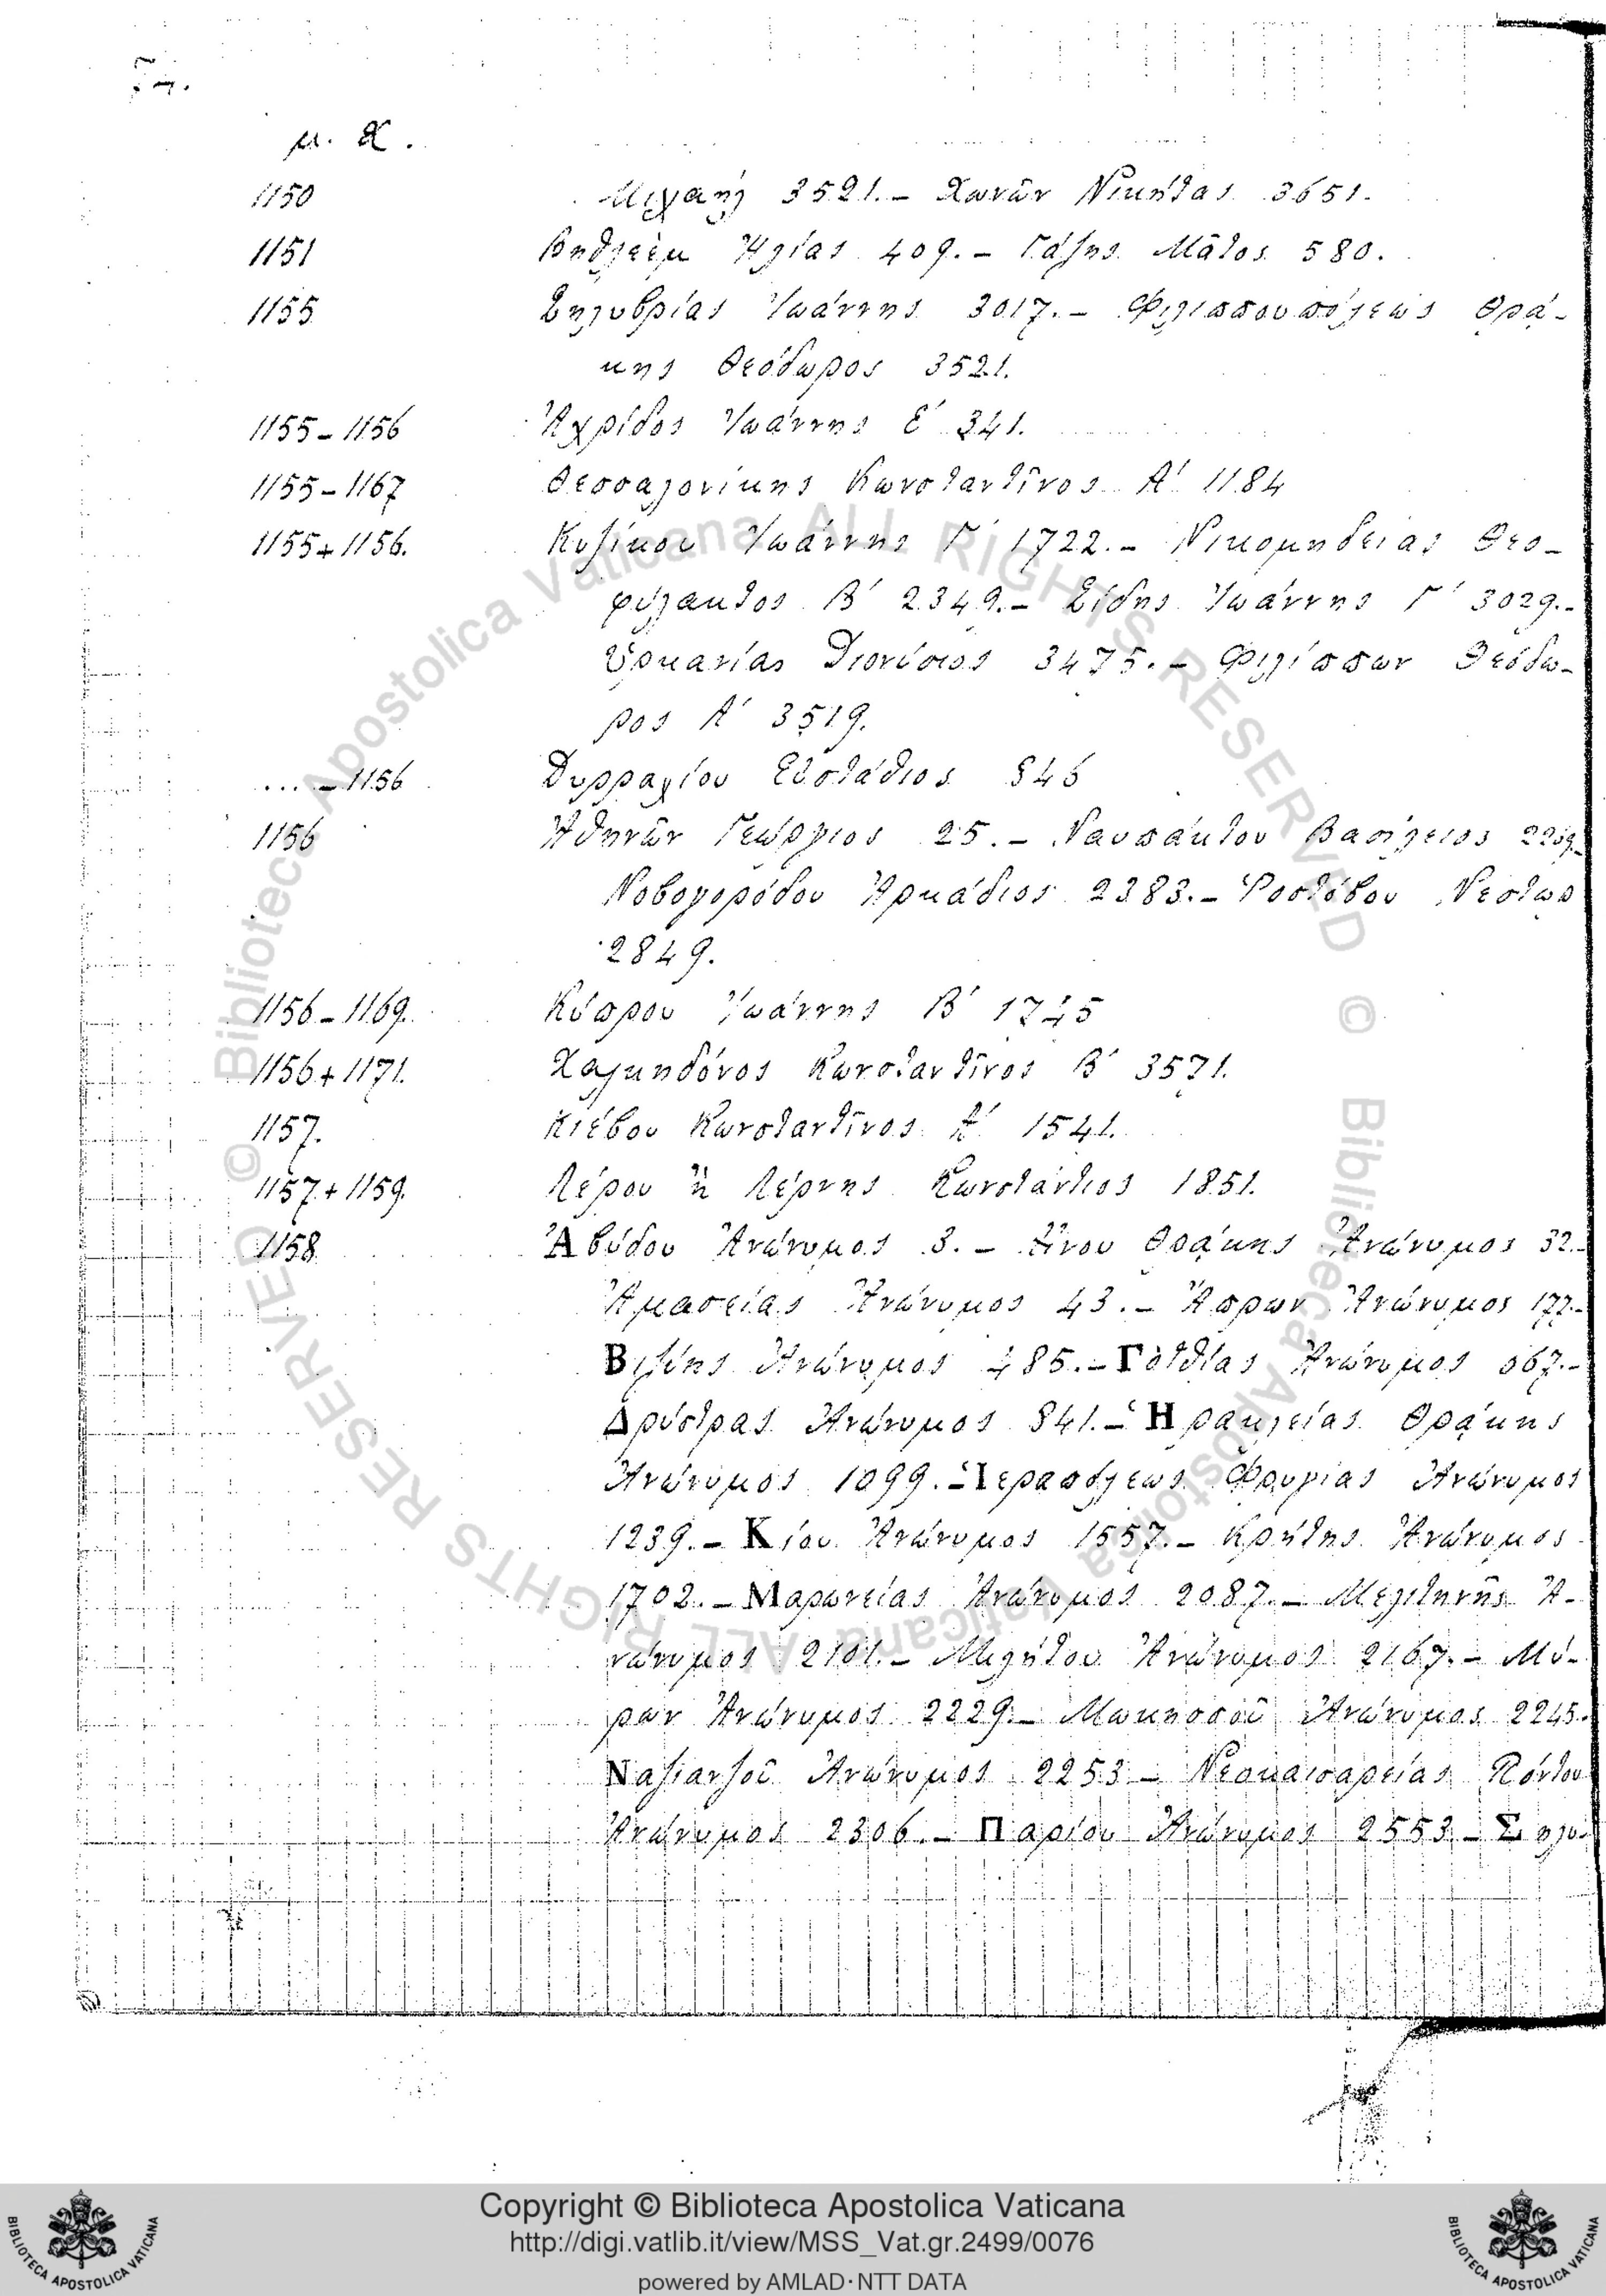 μ. Χ.
1150 Μιχαήλ 3521.– Χωνῶν Νικήτας 3651.
1151 Βηθλεὲμ Ἠλίας 409.– Γάζης Μᾶτος 580.
1155 Σηλυβρίας Ἰωάννης 3017.– Φιλιππουπόλεως Θρᾴ-
κης Θεόδωρος 3521.
1155–1156 Ἀχρίδος Ἰωάννης Ε΄ 341.
1155–1167 Θεσσαλονίκης Κωνσταντῖνος Α΄ 1184
1155+1156. Κυζίκου Ἰωάννης Γ΄ 1722.– Νικομηδείας Θεο-
φύλακτος Β΄ 2349.– Σίδης Ἰωάννης Γ΄ 3029.–
Ὑρκανίας Διονύσιος 3475.– Φιλίππων Θεόδω-
ρος Α΄ 3519.
...–1156 Δυρραχίου Εὐστάθιος 846
1156 Ἀθηνῶν Γεώργιος 25.– Ναυπάκτου Βασίλειος
Νοβογορόδου Ἀρκάδιος 2383.– Ῥοστόβου Νέστωρ
2849.
1156–1169. Κύπρου Ἰωάννης Β΄ 1745
1156+1171. Χαλκηδόνος Κωνσταντῖνος Β΄ 3571.
1157. Κιέβου Κωνσταντῖνος Α΄ 1541.
1157+1159. Λέρου ἢ Λέρνης Κωνστάντιος 1851.
1158 Ἀβύδου Ἀνώνυμος 3.– Αἴνου Θρᾴκης Ἀνώνυμος 32.–
Ἀμασείας Ἀνώνυμος 43.– Ἄπρων Ἀνώνυμος 177.–
Βιζύης Ἀνώνυμος 485.– Γοτθίας Ἀνώνυμος 667.–
Δρύστρας Ἀνώνυμος 841.– Ἡρακλείας Θρᾴκης
Ἀνώνυμος 1099.– Ἱεραπόλεως Φρυγίας Ἀνώνυμος
1239.– Κίου Ἀνώνυμος 1557.– Κρήτης Ἀνώνυμος
1702.– Μαρωνείας Ἀνώνυμος 2087.– Μελιτηνῆς Ἀ-
νώνυμος 2101.– Μιλήτου Ἀνώνυμος 2167.– Μύ-
ρων Ἀνώνυμος 2229.– Μωκησσοῦ Ἀνώνυμος 2245.
Ναζιανζοῦ Ἀνώνυμος 2253– Νεοκαισαρείας Πόντου
Ἀνώνυμος 2306.– Παρίου Ἀνώνυμος 2553– Σηλυ-
© Biblioteca Apostolica Vaticana ALL RIGHTS RESERVED © Biblioteca Apostolica Vaticana ALL RIGHTS RESERVED
Copyright © Biblioteca Apostolica Vaticana
http://digi.vatlib.it/view/MSS_Vat.gr.2499/0076
powered by AMLAD·NTT DATA
BIBLIOTECA APOSTOLICA VATICANA
BIBLIOTECA APOSTOLICA VATICANA